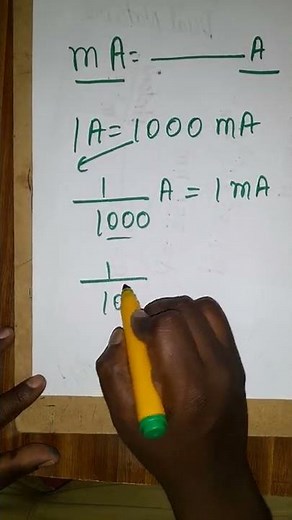 mA= ______ A
1A= 1000 mA
1/1000 A = 1 mA
1/10